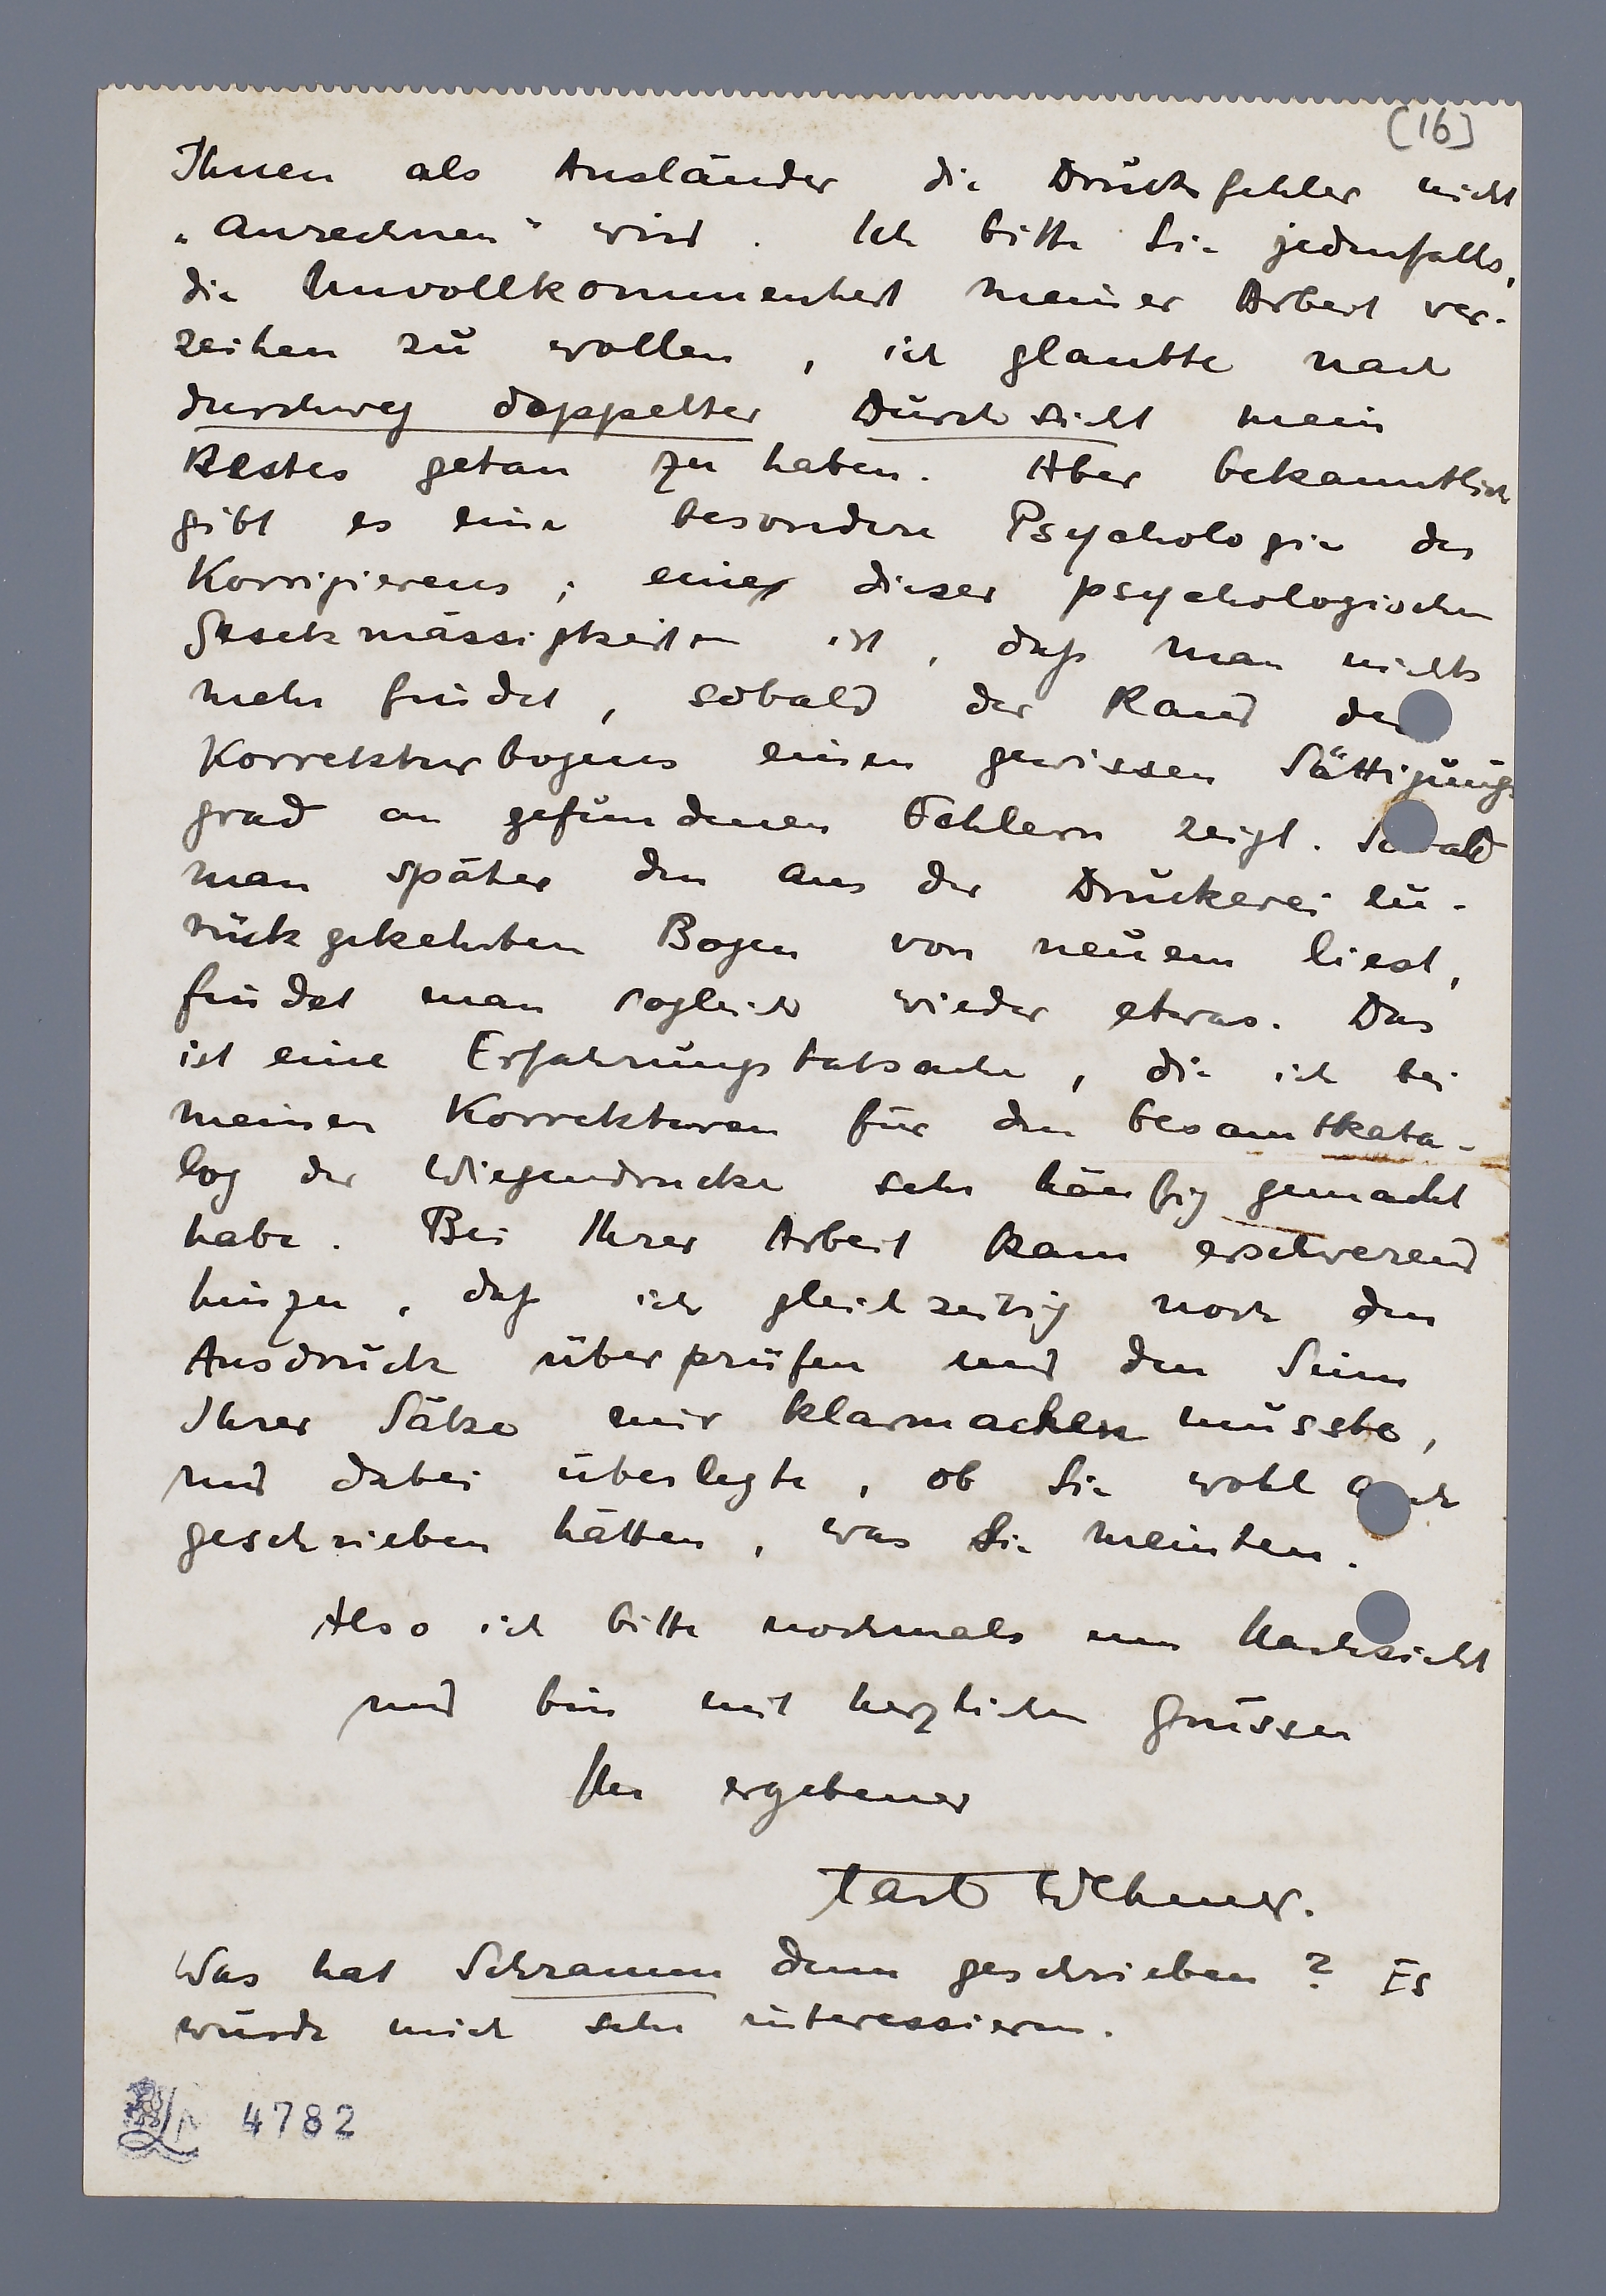 [16]
Ihnen als Ausländer die Druckfehler nicht
„anrechnen“ wird. Ich bitte Sie jedenfalls,
die Unvollkommenheit meiner Arbeit ver-
zeihen zu wollen, ich glaubte nach
durchweg doppelter Durchsicht mein
Bestes getan zu haben. Aber bekanntlich
gibt es eine besondere Psychologie des
Korrigierens; eine dieser psychologischen
Gesetzmässigkeiten ist, daß man nichts
mehr findet, sobald der Rand des
Korrekturbogens einen gewissen Sättigungs
grad an gefundenen Fehlern zeigt. Sobald
man später den aus der Druckerei zu-
rückgekehrten Bogen von neuem liest,
findet man sogleich wieder etwas. Das
ist eine Erfahrungstatsache, die ich bei
meinen Korrekturen für den Gesamtkata-
log der Wiegendrucke sehr häufig gemacht
habe. Bei Ihrer Arbeit kam erschwerend
hinzu, daß ich gleichzeitig noch den
Ausdruck überprüfen und den Sinn
Ihrer Sätze mir klarmachen müsste,
und dabei überlegte, ob Sie wohl auch
geschrieben hätten, was Sie meinten.
Also ich bitte nochmals um Nachsicht
und bin mit herzlichen Grüssen
Ihr ergebener
Carl Wehmer.
Was hat Schramm denn geschrieben? Es
würde mich sehr interessieren.
4782